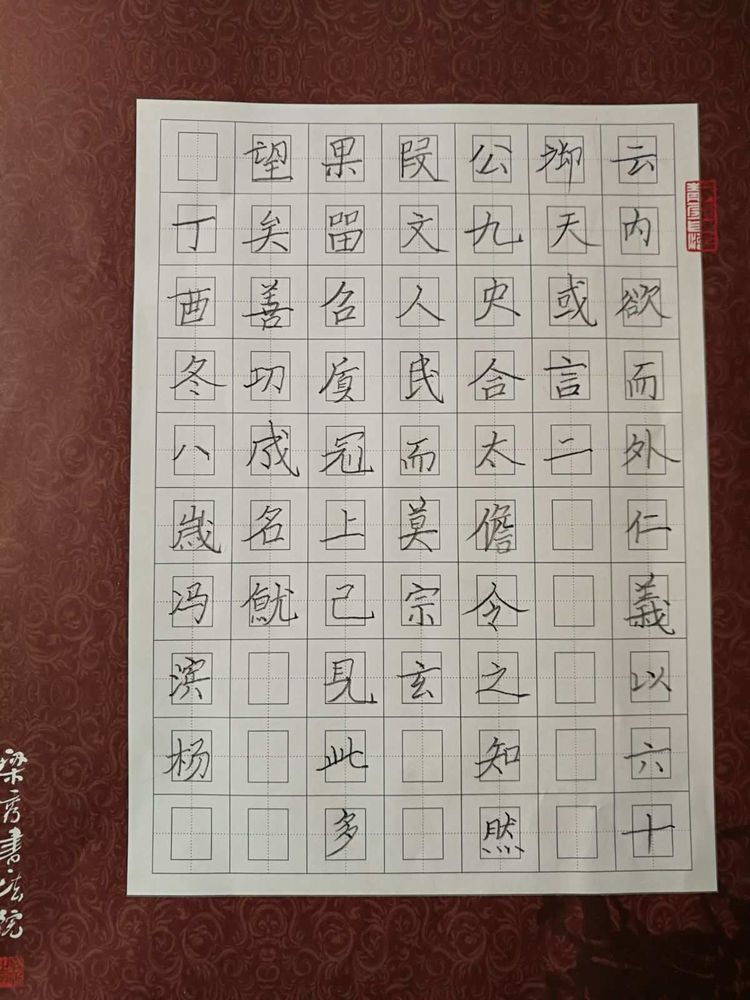 云内欲而外仁義以六十
御天或言二
公九史合太儋令之知然
段文人民而莫宗玄
果留召质冠上己見此多
望矣善切成名魷
丁酉冬八嵗冯滨杨
梁秀書法院